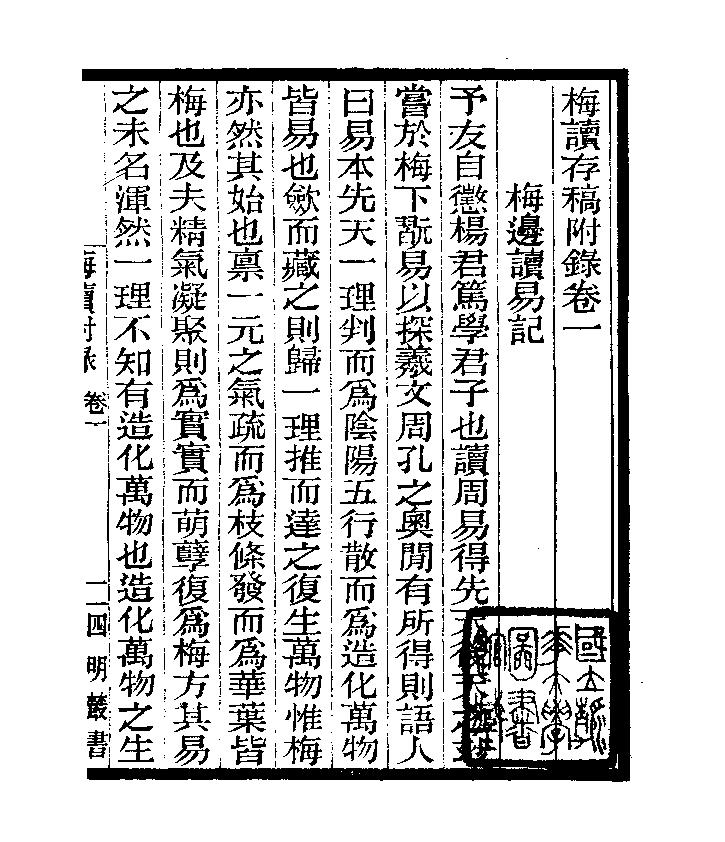 梅讀存稿附錄卷一
梅邊讀易記
予友自懲楊君篤學君子也讀周易得先天後天之
嘗於梅下翫易以探羲文周孔之奧閒有所得則語人
曰易本先天一理判而爲陰陽五行散而爲造化萬物
皆易也斂而藏之則歸一理推而達之復生萬物惟梅
亦然其始也稟一元之氣疏而爲枝條發而爲華葉皆
梅也及夫精氣凝聚則爲實實而萌孽復爲梅方其易
之未名渾然一理不知有造化萬物也造化萬物之生
梅讀附錄 卷一
一 四明叢書
國立
圖書